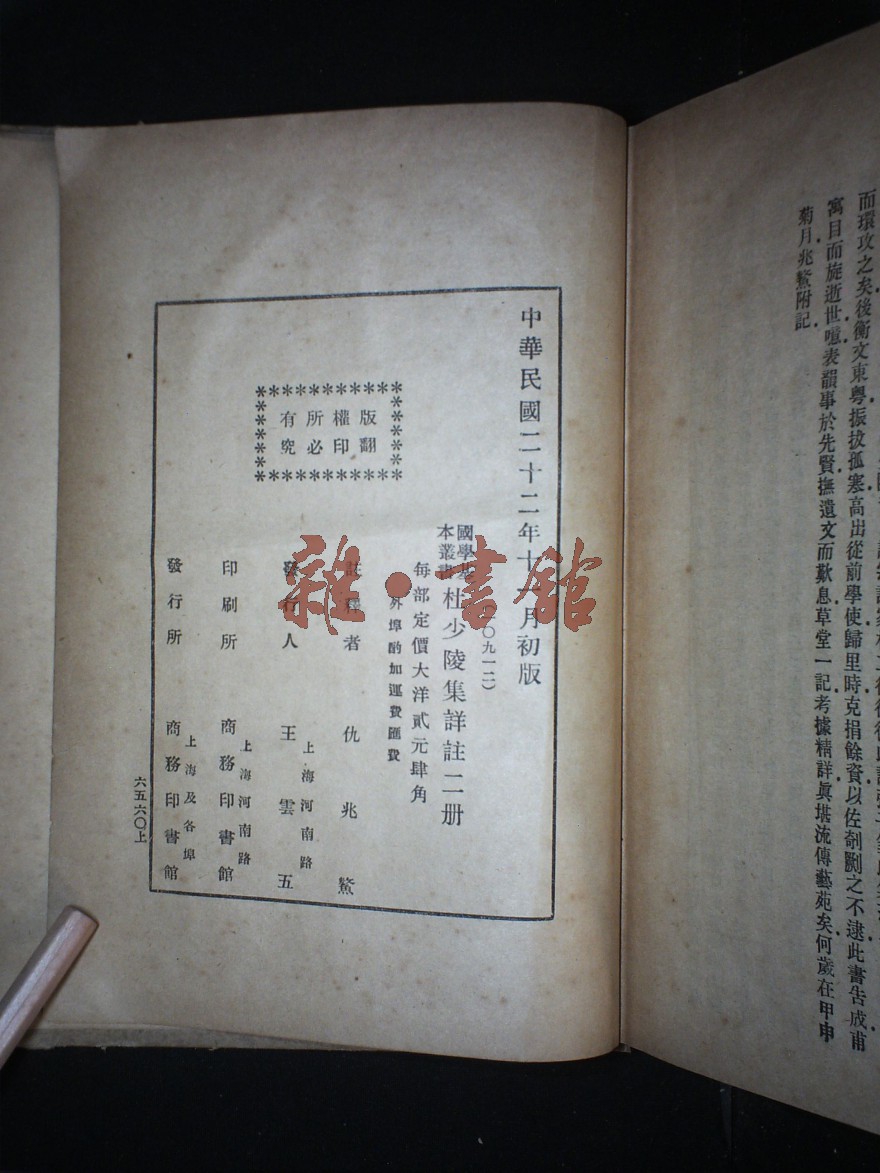 而環攻之矣後衡文東粤振拔孤寒高出從前學使歸里時克捐餘資以佐剞劂之不逮此書告成甫
寓目而旋逝世噫表韻事於先賢撫遺文而歎息草堂一記考據精詳眞堪流傳藝苑矣何歲在甲申
菊月兆鰲附記
中華民國二十二年十一月初版
〇九一二)
國學基
本叢書
杜少陵集詳註二册
每部定價大洋貳元肆角
外埠酌加運費匯費
註釋者 仇兆鰲
上海河南路
發行人 王雲五
上海河南路
印刷所 商務印書館
上海及各埠
發行所 商務印書館
版翻
權印
所必
有究
六五六〇上
雜·書館